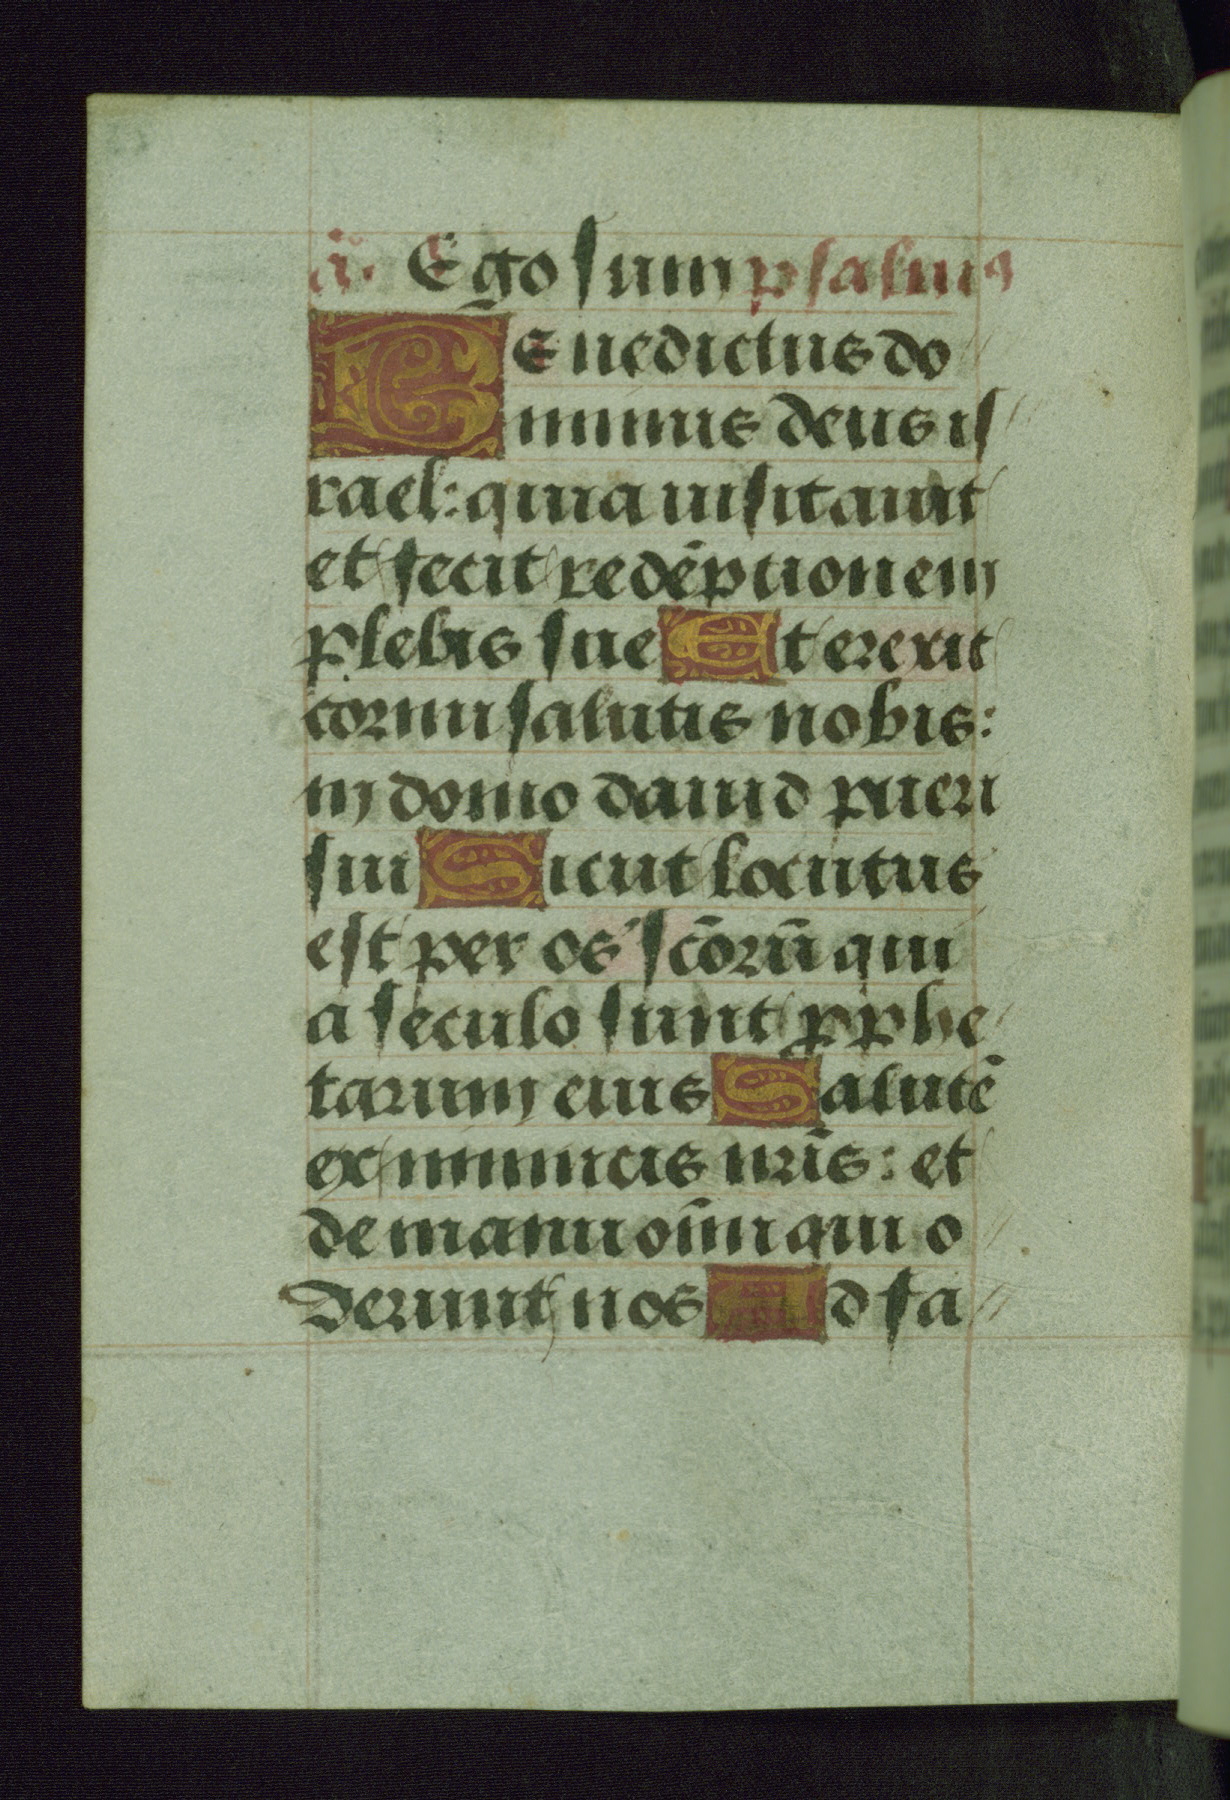 a͞. Ego sum psalmꝰ
Benedictus do
minus deus is
rael: quia uisitauit
et fecit redēptionem
plebis sue Et erexit
cornu salutis nobis:
in domo dauid pueri
sui Sicut locutus
est per os sc̄oꝛū qui
a seculo sunt ꝓphe
tarum eius Salutē
ex inimicis nr̄is: et
de manu om̄i qui o
derunt nos Ad fa